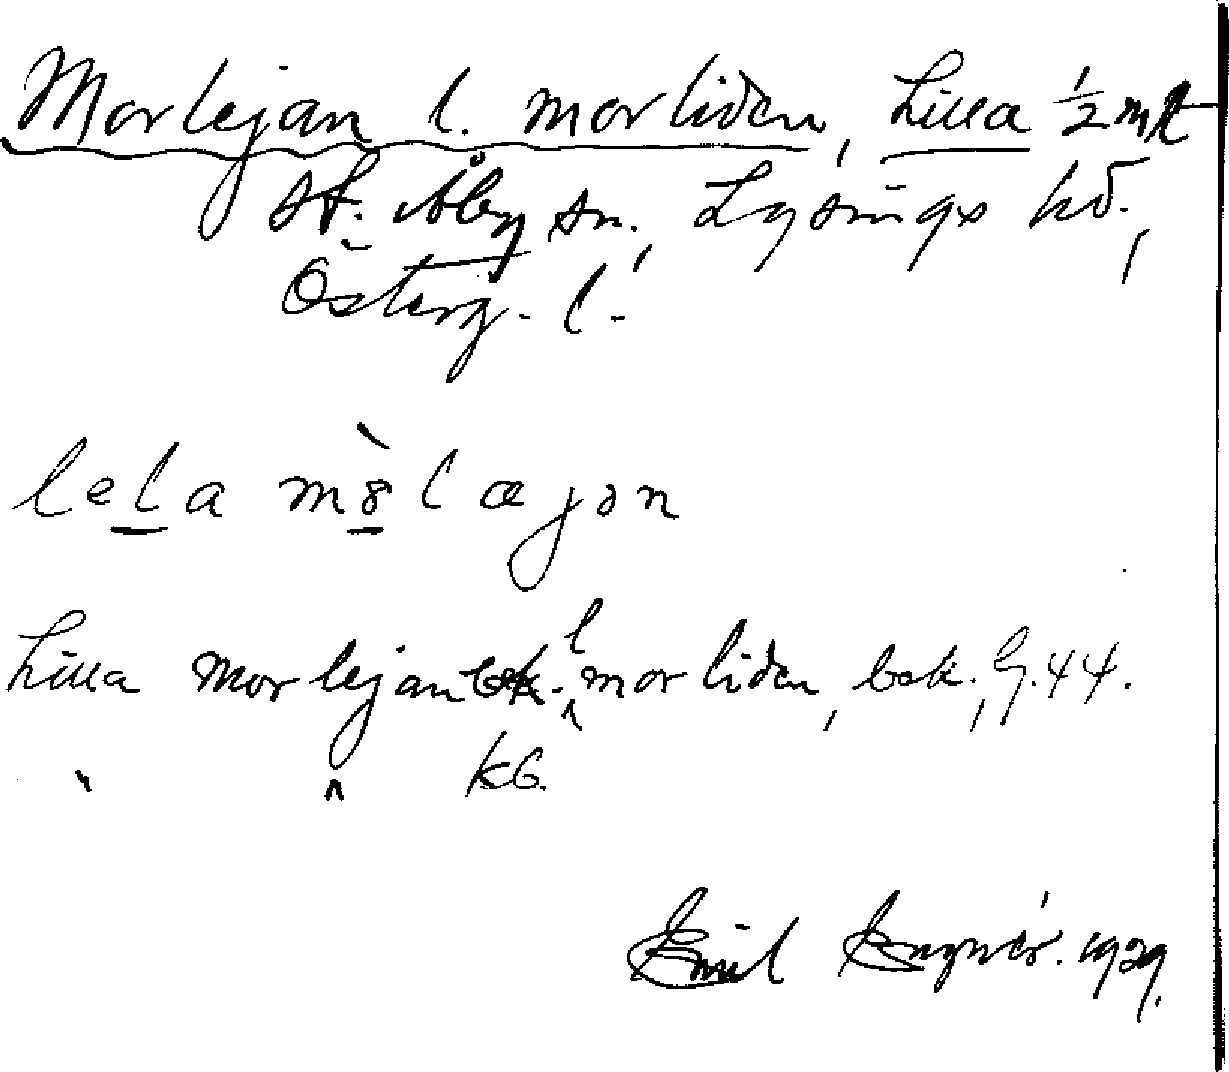 Morlejan l. Morliden, Lilla 1/2 mtl
St. Åby sn., Lysings hd.,
Österg. l.
lela mö̀læjən
Lilla Morlejan l. Morliden, bsk., G. 44.
KG.
Emil Engnér. 1929.